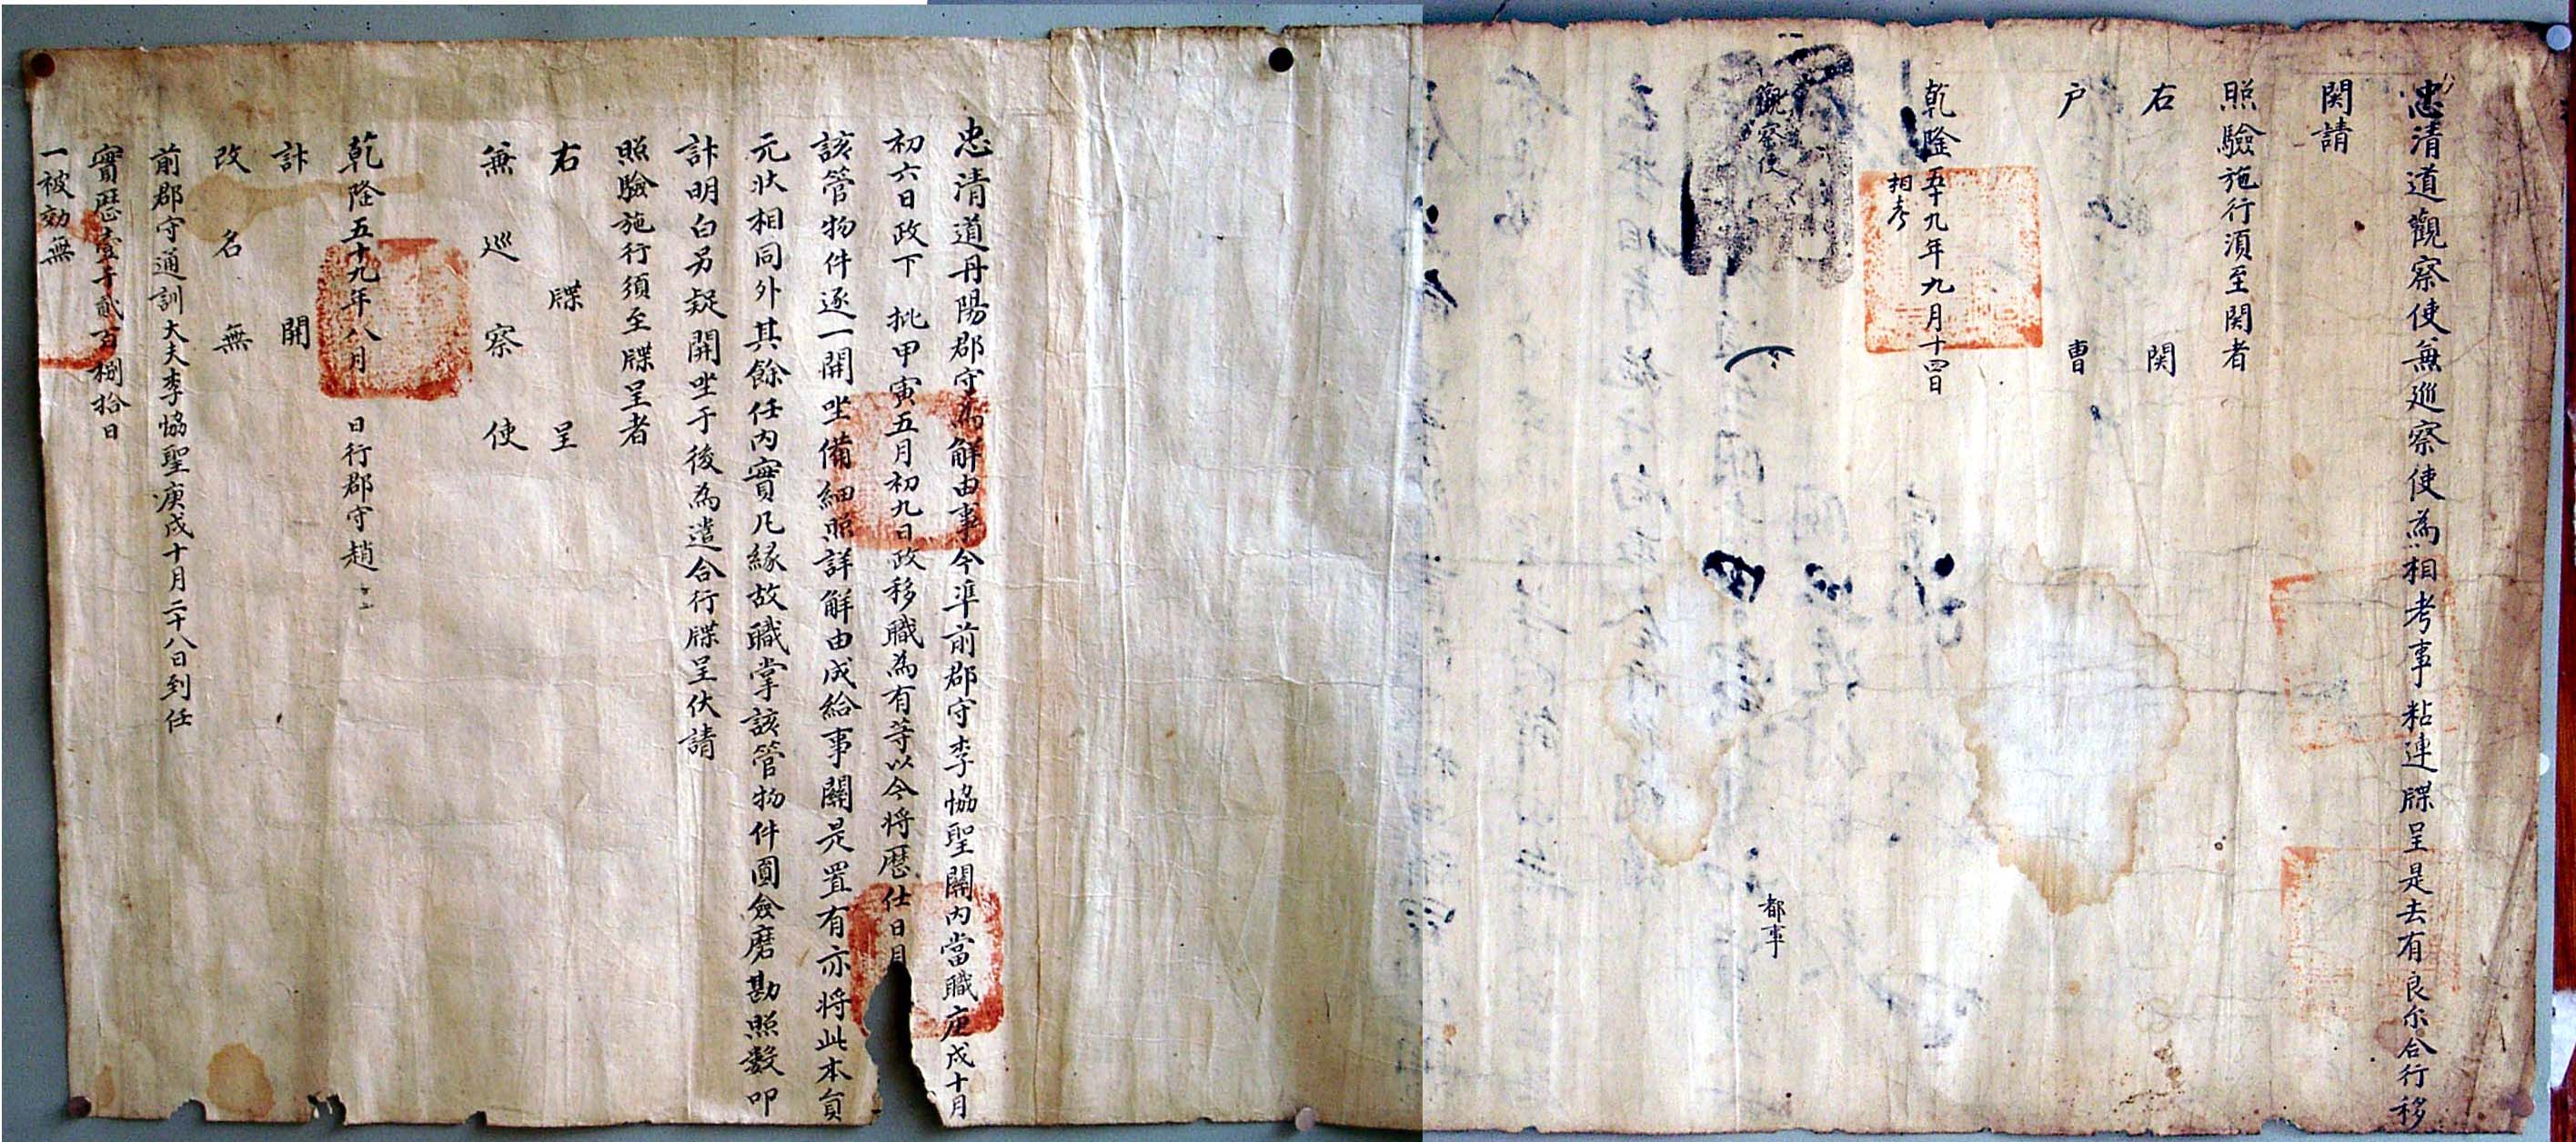 忠清道觀察使兼巡察使為相考事粘連牒呈是去有良尓合行移
関請
照驗施行湏至関者
右関
户曹
乾隆五十九年九月十四日
相考
觀察使
都事
忠清道丹陽郡守為解由事今準前郡守李恊聖關内當職庚戌十月
初六日政下批甲寅五月初九日政移職為有等以今将歷仕日月
該管物件逐一開坐備細照詳解由成給事關是置有亦将此本貟
元状相同外其餘任内實凡緣故職掌該管物件圓僉磨勘照数叩
計明白另疑開坐于後為遣合行牒呈伏請
照驗施行須至牒呈者
右牒呈
兼巡察使
乾隆五十九年八月日行郡守趙
計開
改名無
前郡守通訓大夫李恊聖庚戌十月二十八日到任
實歷壹千貳百捌拾日
一被劾無